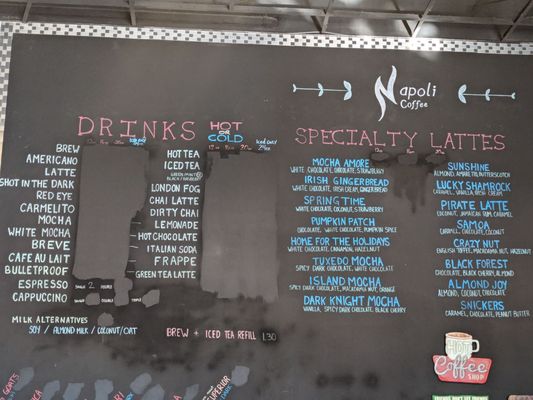 Napoli
Coffee
DRINKS
HOT
OR
COLD
Iced Only
24oz
BREW
AMERICANO
LATTE
SHOT IN THE DARK
RED EYE
CARMELITO
MOCHA
WHITE MOCHA
BREVE
CAFE AU LAIT
BULLETPROOF
ESPRESSO
CAPPUCCINO
HOT TEA
ICED TEA
LONDON FOG
CHAI LATTE
DIRTY CHAI
LEMONADE
HOT CHOCOLATE
ITALIAN SODA
FRAPPE
GREEN TEA LATTE
MILK ALTERNATIVES
SOY / ALMOND MILK / COCONUT/OAT
BREW + ICED TEA REFILL 1.30
SPECIALTY LATTES
MOCHA AMORE
WHITE CHOCOLATE, CHOCOLATE, STRAWBERRY
IRISH GINGERBREAD
WHITE CHOCOLATE, IRISH CREAM, GINGERBREAD
SPRING TIME
WHITE CHOCOLATE, COCONUT, STRAWBERRY
PUMPKIN PATCH
CHOCOLATE, WHITE CHOCOLATE, PUMPKIN SPICE
HOME FOR THE HOLIDAYS
WHITE CHOCOLATE, CINNAMON, HAZELNUT
TUXEDO MOCHA
SPICY DARK CHOCOLATE, WHITE CHOCOLATE
ISLAND MOCHA
SPICY DARK CHOCOLATE, MACADAMIA NUT, ORANGE
DARK KNIGHT MOCHA
VANILLA, SPICY DARK CHOCOLATE, BLACK CHERRY
SUNSHINE
ALMOND, AMARETTO, BUTTERSCOTCH
LUCKY SHAMROCK
CARAMEL, VANILLA, IRISH CREAM
PIRATE LATTE
COCONUT, JAMAICAN RUM, CARAMEL
SAMOA
CARAMEL, CHOCOLATE, COCONUT
CRAZY NUT
ENGLISH TOFFEE, MACADAMIA NUT, HAZELNUT
BLACK FOREST
CHOCOLATE, BLACK CHERRY, ALMOND
ALMOND JOY
ALMOND, COCONUT, CHOCOLATE
SNICKERS
CARAMEL, CHOCOLATE, PEANUT BUTTER
HOT
Coffee
SHOP
GOATS
SUPERIOR